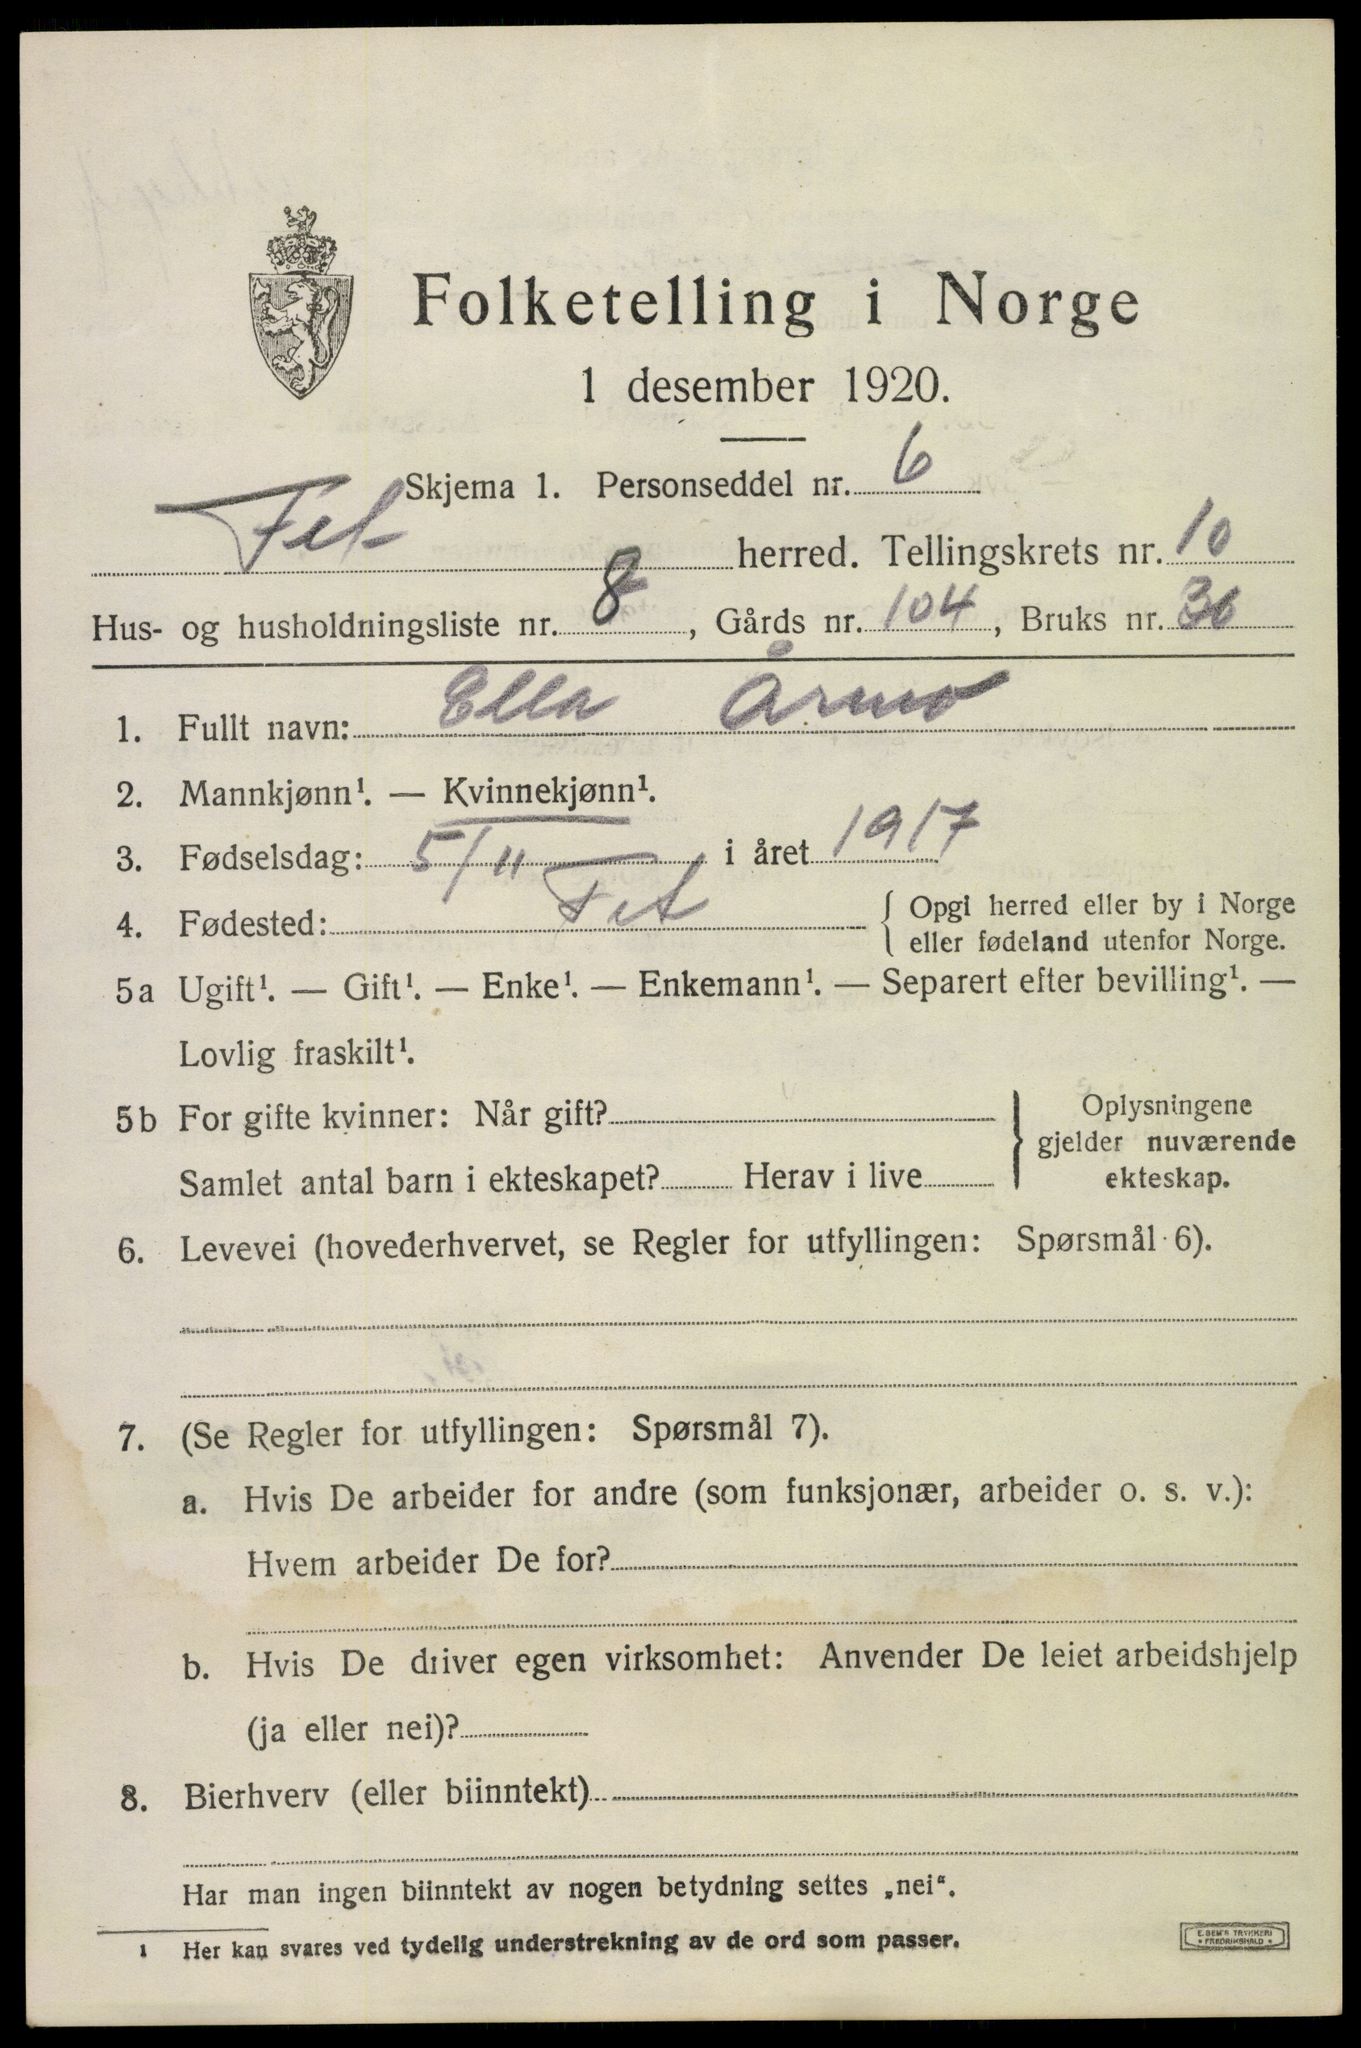 Folketelling i Norge
1 desember 1920.
Skjema 1. Personseddel nr. 6
Fet herred. Tellingskrets nr. 10
Hus- og husholdningsliste nr. 8, Gårds nr. 104, Bruks nr. 36
1. Fullt navn: Ella Årmo
2. Mannkjønn¹. — Kvinnekjønn¹.
3. Fødselsdag: 5/11 i året 1917
4. Fødested: Fet { Opgi herred eller by i Norge
eller fødeland utenfor Norge.
5a Ugift¹. — Gift¹. — Enke¹. — Enkemann¹. — Separert efter bevilling¹. —
Lovlig fraskilt¹.
5b For gifte kvinner: Når gift?
Samlet antal barn i ekteskapet? Herav i live
} Oplysningene
gjelder nuværende
ekteskap.
6. Levevei (hovederhvervet, se Regler for utfyllingen: Spørsmål 6).
7. (Se Regler for utfyllingen: Spørsmål 7).
a. Hvis De arbeider for andre (som funksjonær, arbeider o. s. v.):
Hvem arbeider De for?
b. Hvis De driver egen virksomhet: Anvender De leiet arbeidshjelp
(ja eller nei)?
8. Bierhverv (eller biinntekt)
Har man ingen biinntekt av nogen betydning settes „nei“.
1 Her kan svares ved tydelig understrekning av de ord som passer.
E. SEM'S TRYKKERI
* FREDRIKSHALD *